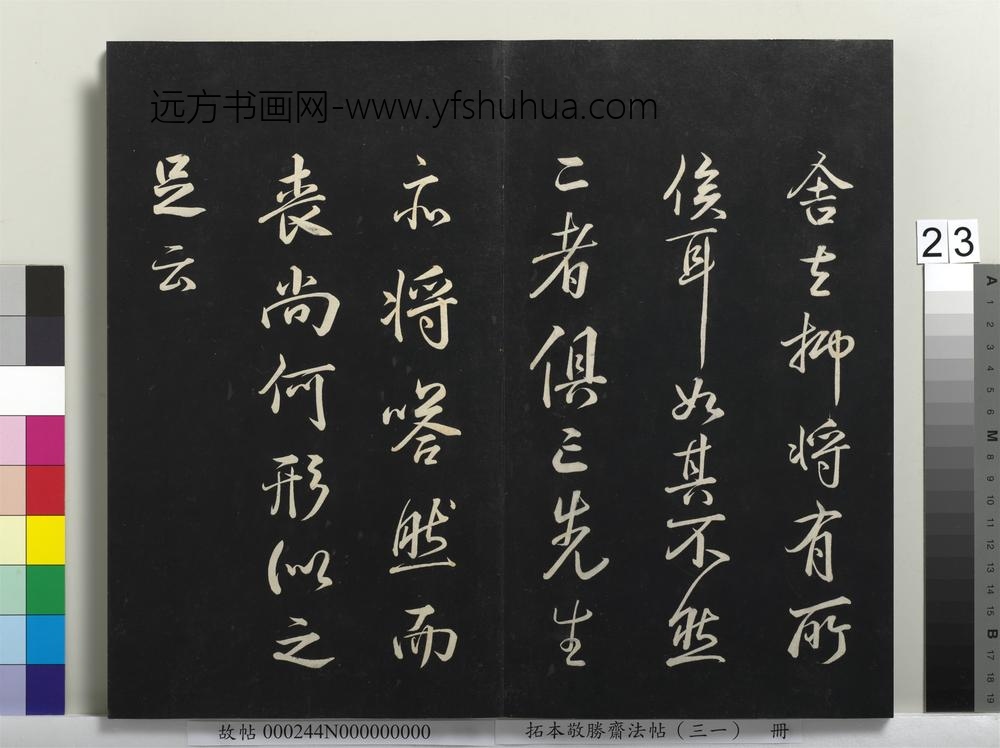 远方书画网-www.yfshuhua.com
舍去抑将有所
俟耳如其不然
二者俱亡先生
亦将嗒然而
喪尚何形似之
足云
23
A
1
2
3
4
5
6
M
8
9
10
11
12
13
14
15
B
17
18
19
故帖 000244N000000000
拓本敬勝齋法帖（三一） 冊